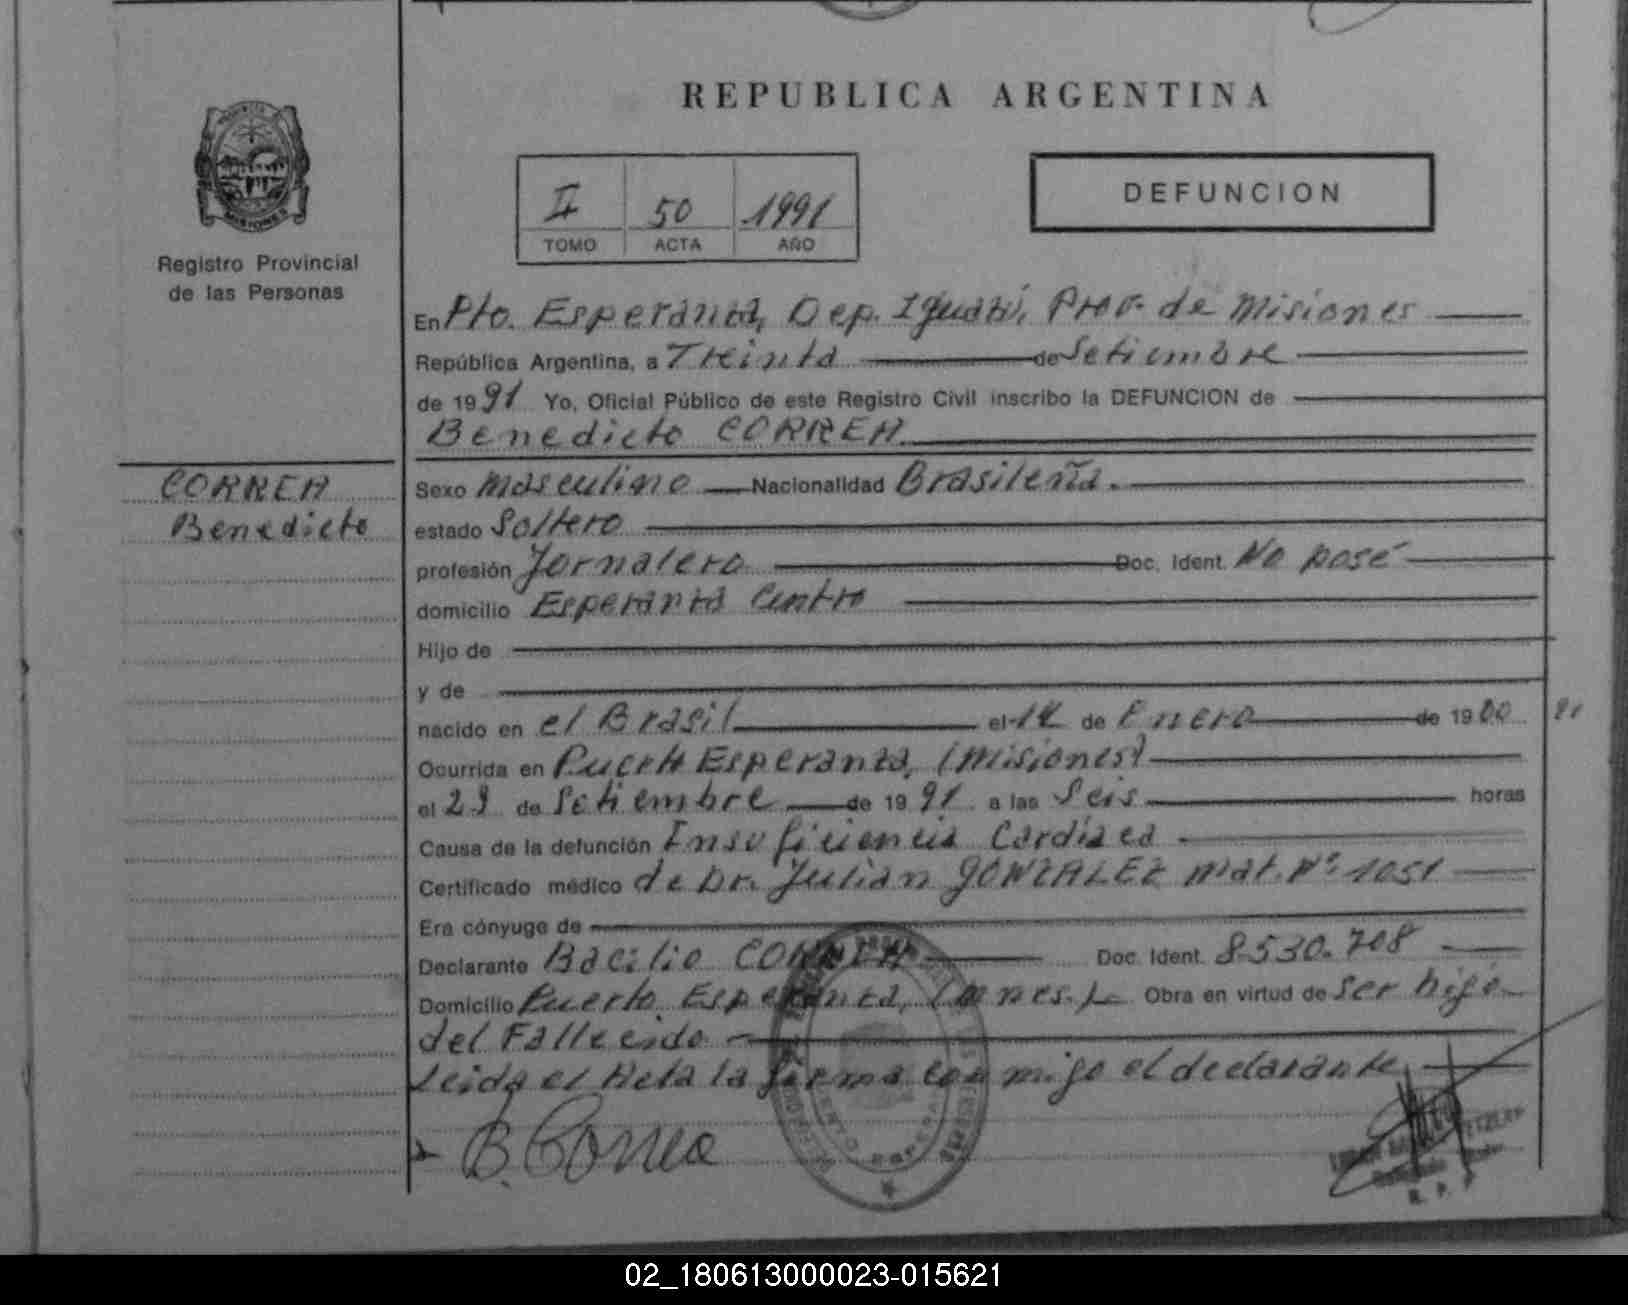 REPUBLICA ARGENTINA
MISIONES
Registro Provincial
de las Personas
II 50 1991
TOMO ACTA AÑO
DEFUNCION
En Pto. Esperanza, Dep. Iguazú, Prov. de Misiones
República Argentina, a Treinta de Setiembre
de 1991 Yo, Oficial Público de este Registro Civil inscribo la DEFUNCION de
Benedicto CORREA
CORREA
Benedicto
Sexo masculino Nacionalidad Brasileña.
estado Soltero
profesión Jornalero Doc. Ident. No posé
domicilio Esperanza Centro
Hijo de
y de
nacido en el Brasil el de Enero de 1900 91
Ocurrida en Puerto Esperanza, (Misiones)
el 29 de Setiembre de 1991 a las Seis horas
Causa de la defunción Insuficiencia Cardíaca
Certificado médico de Dr. Julian GONZALEZ Mat. Nº 1051
Era cónyuge de
Declarante Bacilio CORREA Doc. Ident. 8.530.708
Domicilio Puerto Esperanza, (Mnes.) Obra en virtud de ser hijo
del Fallecido
Leida el Acta la firma con migo el declarante
B. Correa
R. P. P
02_180613000023-015621